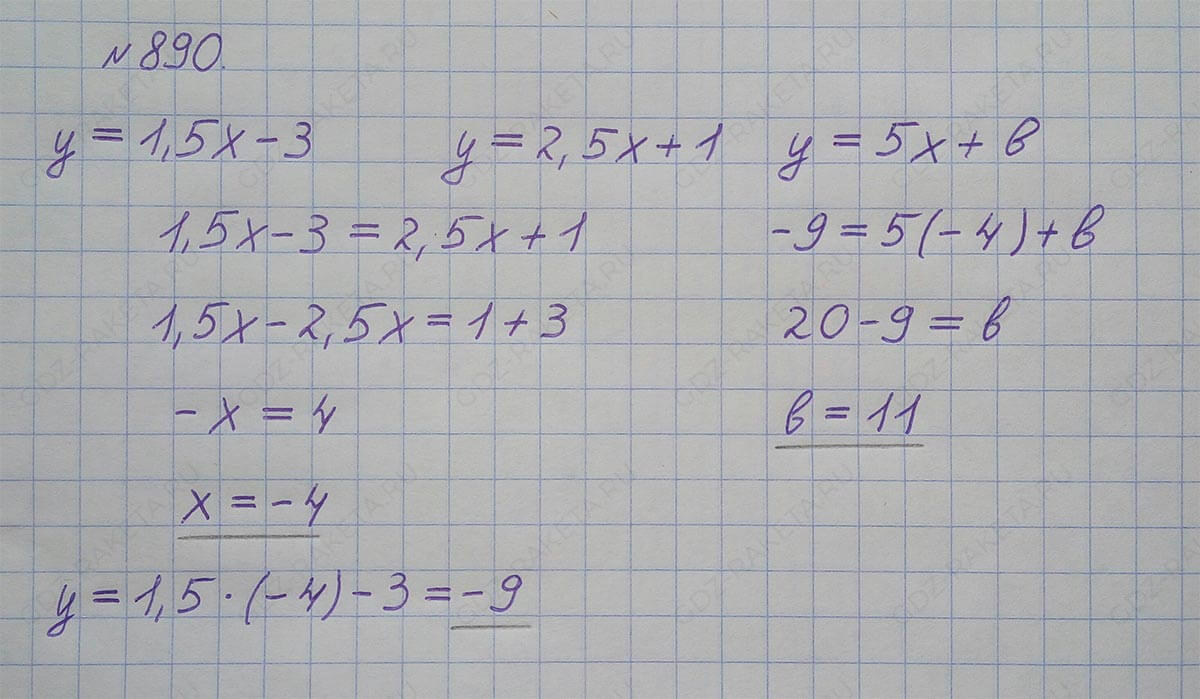 №890.
y = 1,5x - 3 y = 2,5x + 1 y = 5x + в
1,5x - 3 = 2,5x + 1 -9 = 5(-4) + в
1,5x - 2,5x = 1 + 3 20 - 9 = в
-x = 4 в = 11
x = -4
y = 1,5 · (-4) - 3 = -9
GDZ-RAKETA.RU